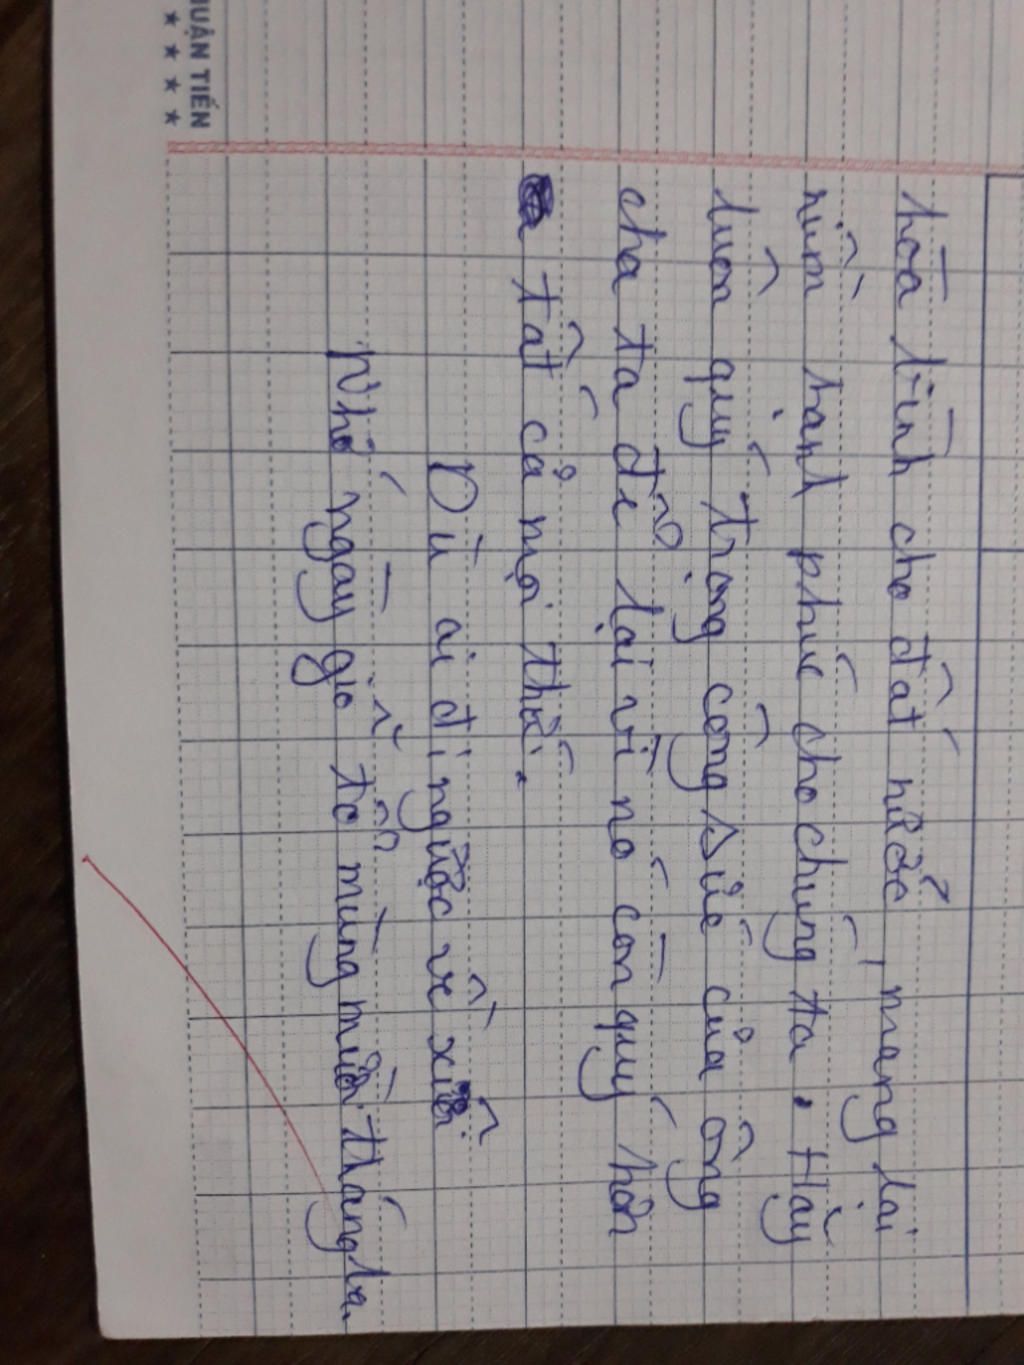 HUẬN TIẾN
hoà bình cho đất nước, mang lại
niềm hạnh phúc cho chúng ta. Hãy
luôn quý trọng công sức của ông
cha ta để lại vì nó còn quý hơn
tất cả mọi thứ.
Dù ai đi ngược về xuôi
Nhớ ngày giỗ tổ mùng mười tháng ba.